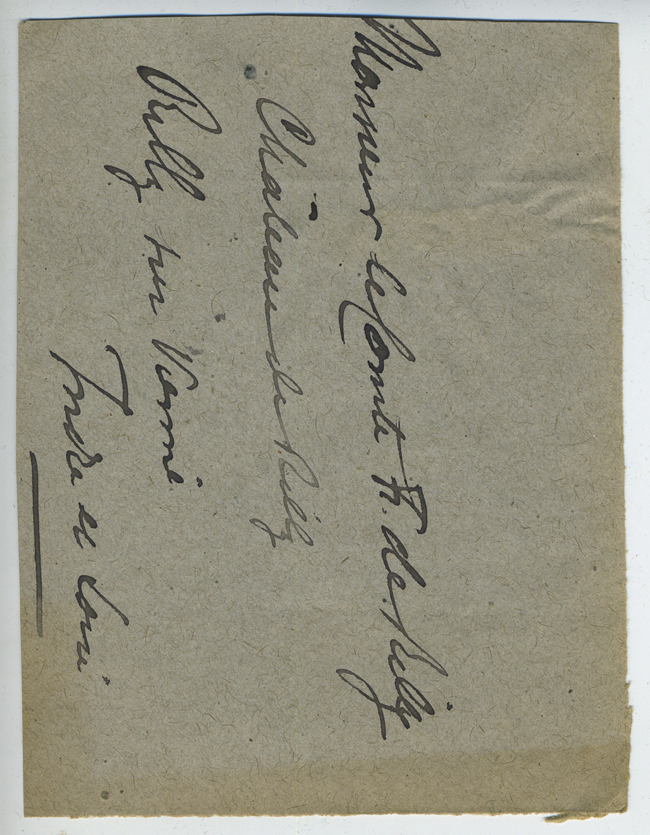 Monsieur le Comte R. de Rilly
Château de Rilly
Rilly sur Vienne
Indre et Loire